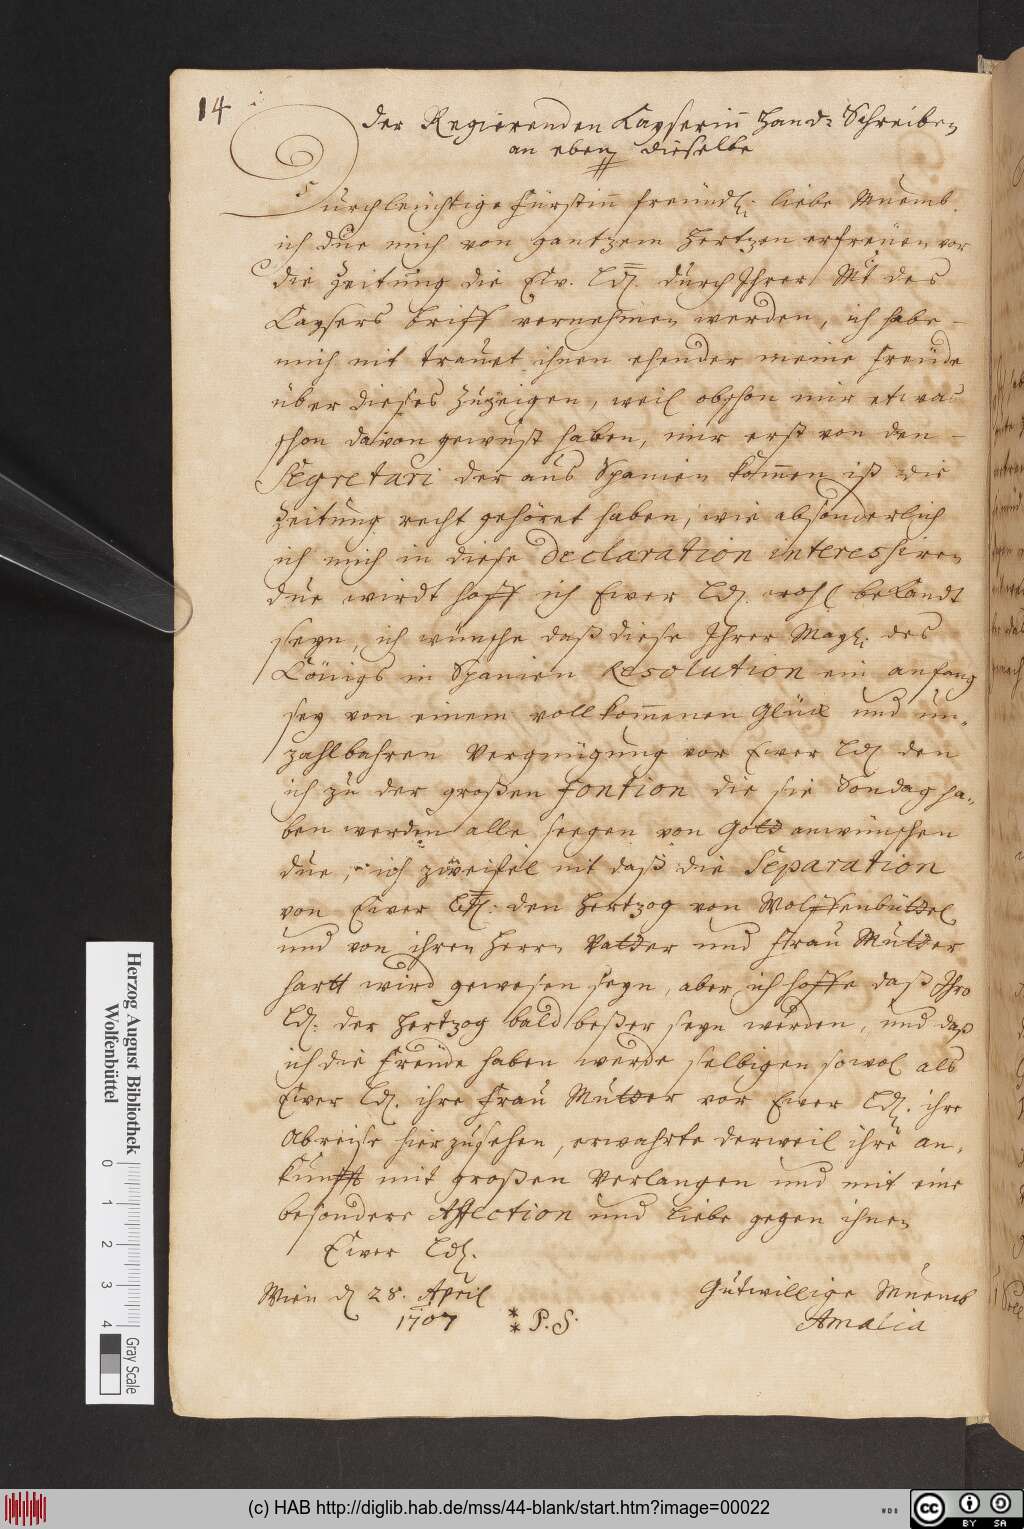 14
Der Regierenden Kayserin Hand-Schreiben
an eben dieselbe
Durchleuchtige Fürstin freündl. liebe Muemb.
ich due mich von gantzem Hertzen erfreüen vor
die Zeitung die Ew. Ld. durch Ihrer Mt. des
Kaysers briff vernehmen werden, ich habe
mich nit trauet ihnen ehender meine Freüde
über dieses zu zeigen, weil obschon mir etwas
schon davon gewust haben, mir erst von den
Segretari der aus Spanien kommen ist die
Zeitung recht gehöret haben, wie absonderlich
ich mich in diese declaration interessiren
due wirdt hoff ich Ewer Ld. wohl bekandt
seyn, ich wünsche daß diese Ihrer May. des
Königs in Spanien Resolution ein anfang
sey von einem vollkommenen Glück und un-
zahlbahren Vergnügung vor Ewer Ld. den
ich zu der großen fontion die sie Sondag ha-
ben werden alle seegen von Gold anwünschen
due, ich zweifel nit daß die Separation
von Ewer Ld. den Hertzog von Wolffenbüttel
und von ihren Herrn Vatter und Frau Mutter
hartt wird gewesen seyn, aber ich hoffe daß Ihro
Ld. der Hertzog bald beßer seyn werden, und daß
ich die Freüde haben werde selbigen sowol als
Ewer Ld. ihre Frau Mutter vor Ewer Ld. ihre
Abreise hier zu sehen, erwahrte derweil ihre an-
kunfft mit großen Verlangen und mit eine
besondere Affection und Liebe gegen ihnen
Ewer Ld.
Wien d. 28. April
1707
** P.S.
Gutwillige Muemb
Amalia
Herzog August Bibliothek
Wolfenbüttel
0 1 2 3 4
Gray Scale
(c) HAB http://diglib.hab.de/mss/44-blank/start.htm?image=00022
cc BY SA